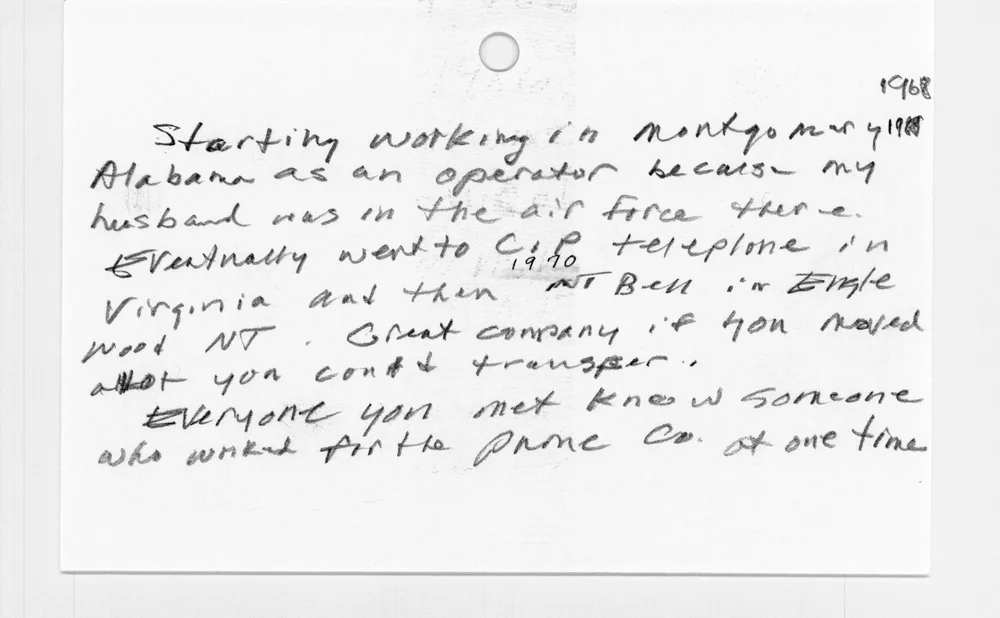 1968
Starting working in Montgomary 1968
Alabama as an operator because my
husband was in the air force there.
Eventually went to C & P telephone in
1970
Virginia and then NJ Bell in Engle
wood NJ. Great company if you moved
alot you could transfer.
Everyone you met know someone
who worked for the phone Co. at one time